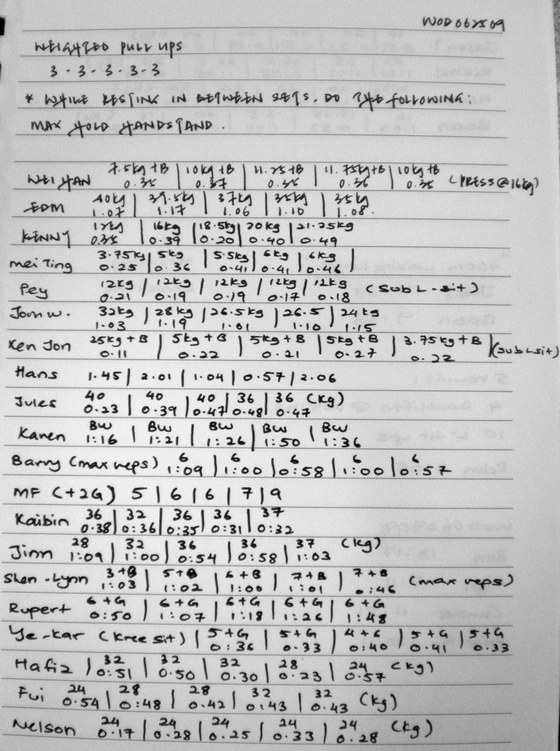 WOD 062509
WEIGHTED PULL UPS
3 - 3 - 3 - 3 - 3
* WHILE RESTING IN BETWEEN SETS, DO THE FOLLOWING:
MAX HOLD HANDSTAND.
7.5kg+B | 10kg+B | 11.25+B | 11.75kg+B | 10kg+B
WEIHAN 0.35 0.37 0.35 0.36 0.35 (PRESS@16kg)
40kg | 39.5kg | 37kg | 35kg | 35kg
EDM 1.07 1.17 1.06 1.10 1.08.
12kg | 16kg | 18.5kg | 20kg | 21.25kg
KENNY 0.35 0.39 0.20 0.40 0.49
3.75kg | 5kg | 5.5kg | 6kg | 6kg |
Mei Ting 0.25 0.36 0.41 0.41 0.46
12kg | 12kg | 12kg | 12kg | 12kg
Pey 0.21 0.19 0.19 0.17 0.18 (sub L-sit)
32kg | 28kg | 26.5kg | 26.5 | 24kg
Jon W. 1.03 1.19 1.01 1.10 1.15
25kg+B | 5kg+B | 5kg+B | 5kg+B | 3.75kg+B
Ken Jon 0.11 0.22 0.21 0.27 0.22 (sub L-sit)
Hans 1.45 | 2.01 | 1.04 | 0.57 | 2.06
40 | 40 | 40 | 36 | 36 (kg)
Jules 0.23 0.39 0.47 0.48 0.47
BW | BW | BW | BW | BW
Karen 1:16 1:21 1:26 1:50 1:36
6 | 6 | 6 | 6 | 6
Barry (max reps) 1:09 1:00 0:58 1:00 0:57
MF (+2G) 5 | 6 | 6 | 7 | 9
36 | 32 | 36 | 36 | 37
Kaibin 0.38 0:36 0:35 0:31 0:32
28 | 32 | 36 | 36 | 37 (kg)
Jinn 1:09 1:00 0:54 0:58 1:03
3+B | 5+B | 6+B | 7+B | 7+B
Shen-Lynn 1:03 1:02 1:00 1:01 :46 (max reps)
6+G | 6+G | 6+G | 6+G | 6+G
Rupert 0:50 1:07 1:18 1:26 1:48
5+G | 5+G | 4+G | 5+G | 5+G
Ye-Kar (Knee sit) 0:36 0:33 0:40 0:41 0:33
32 | 32 | 32 | 28 | 24 (kg)
Hafiz 0:51 0.50 0.30 0.23 0.57
24 | 28 | 28 | 32 | 32
Fui 0.54 0:48 0.42 0:43 0.43 (kg)
24 | 24 | 24 | 24 | 24 (kg)
Nelson 0.17 0.28 0.25 0.33 0.28